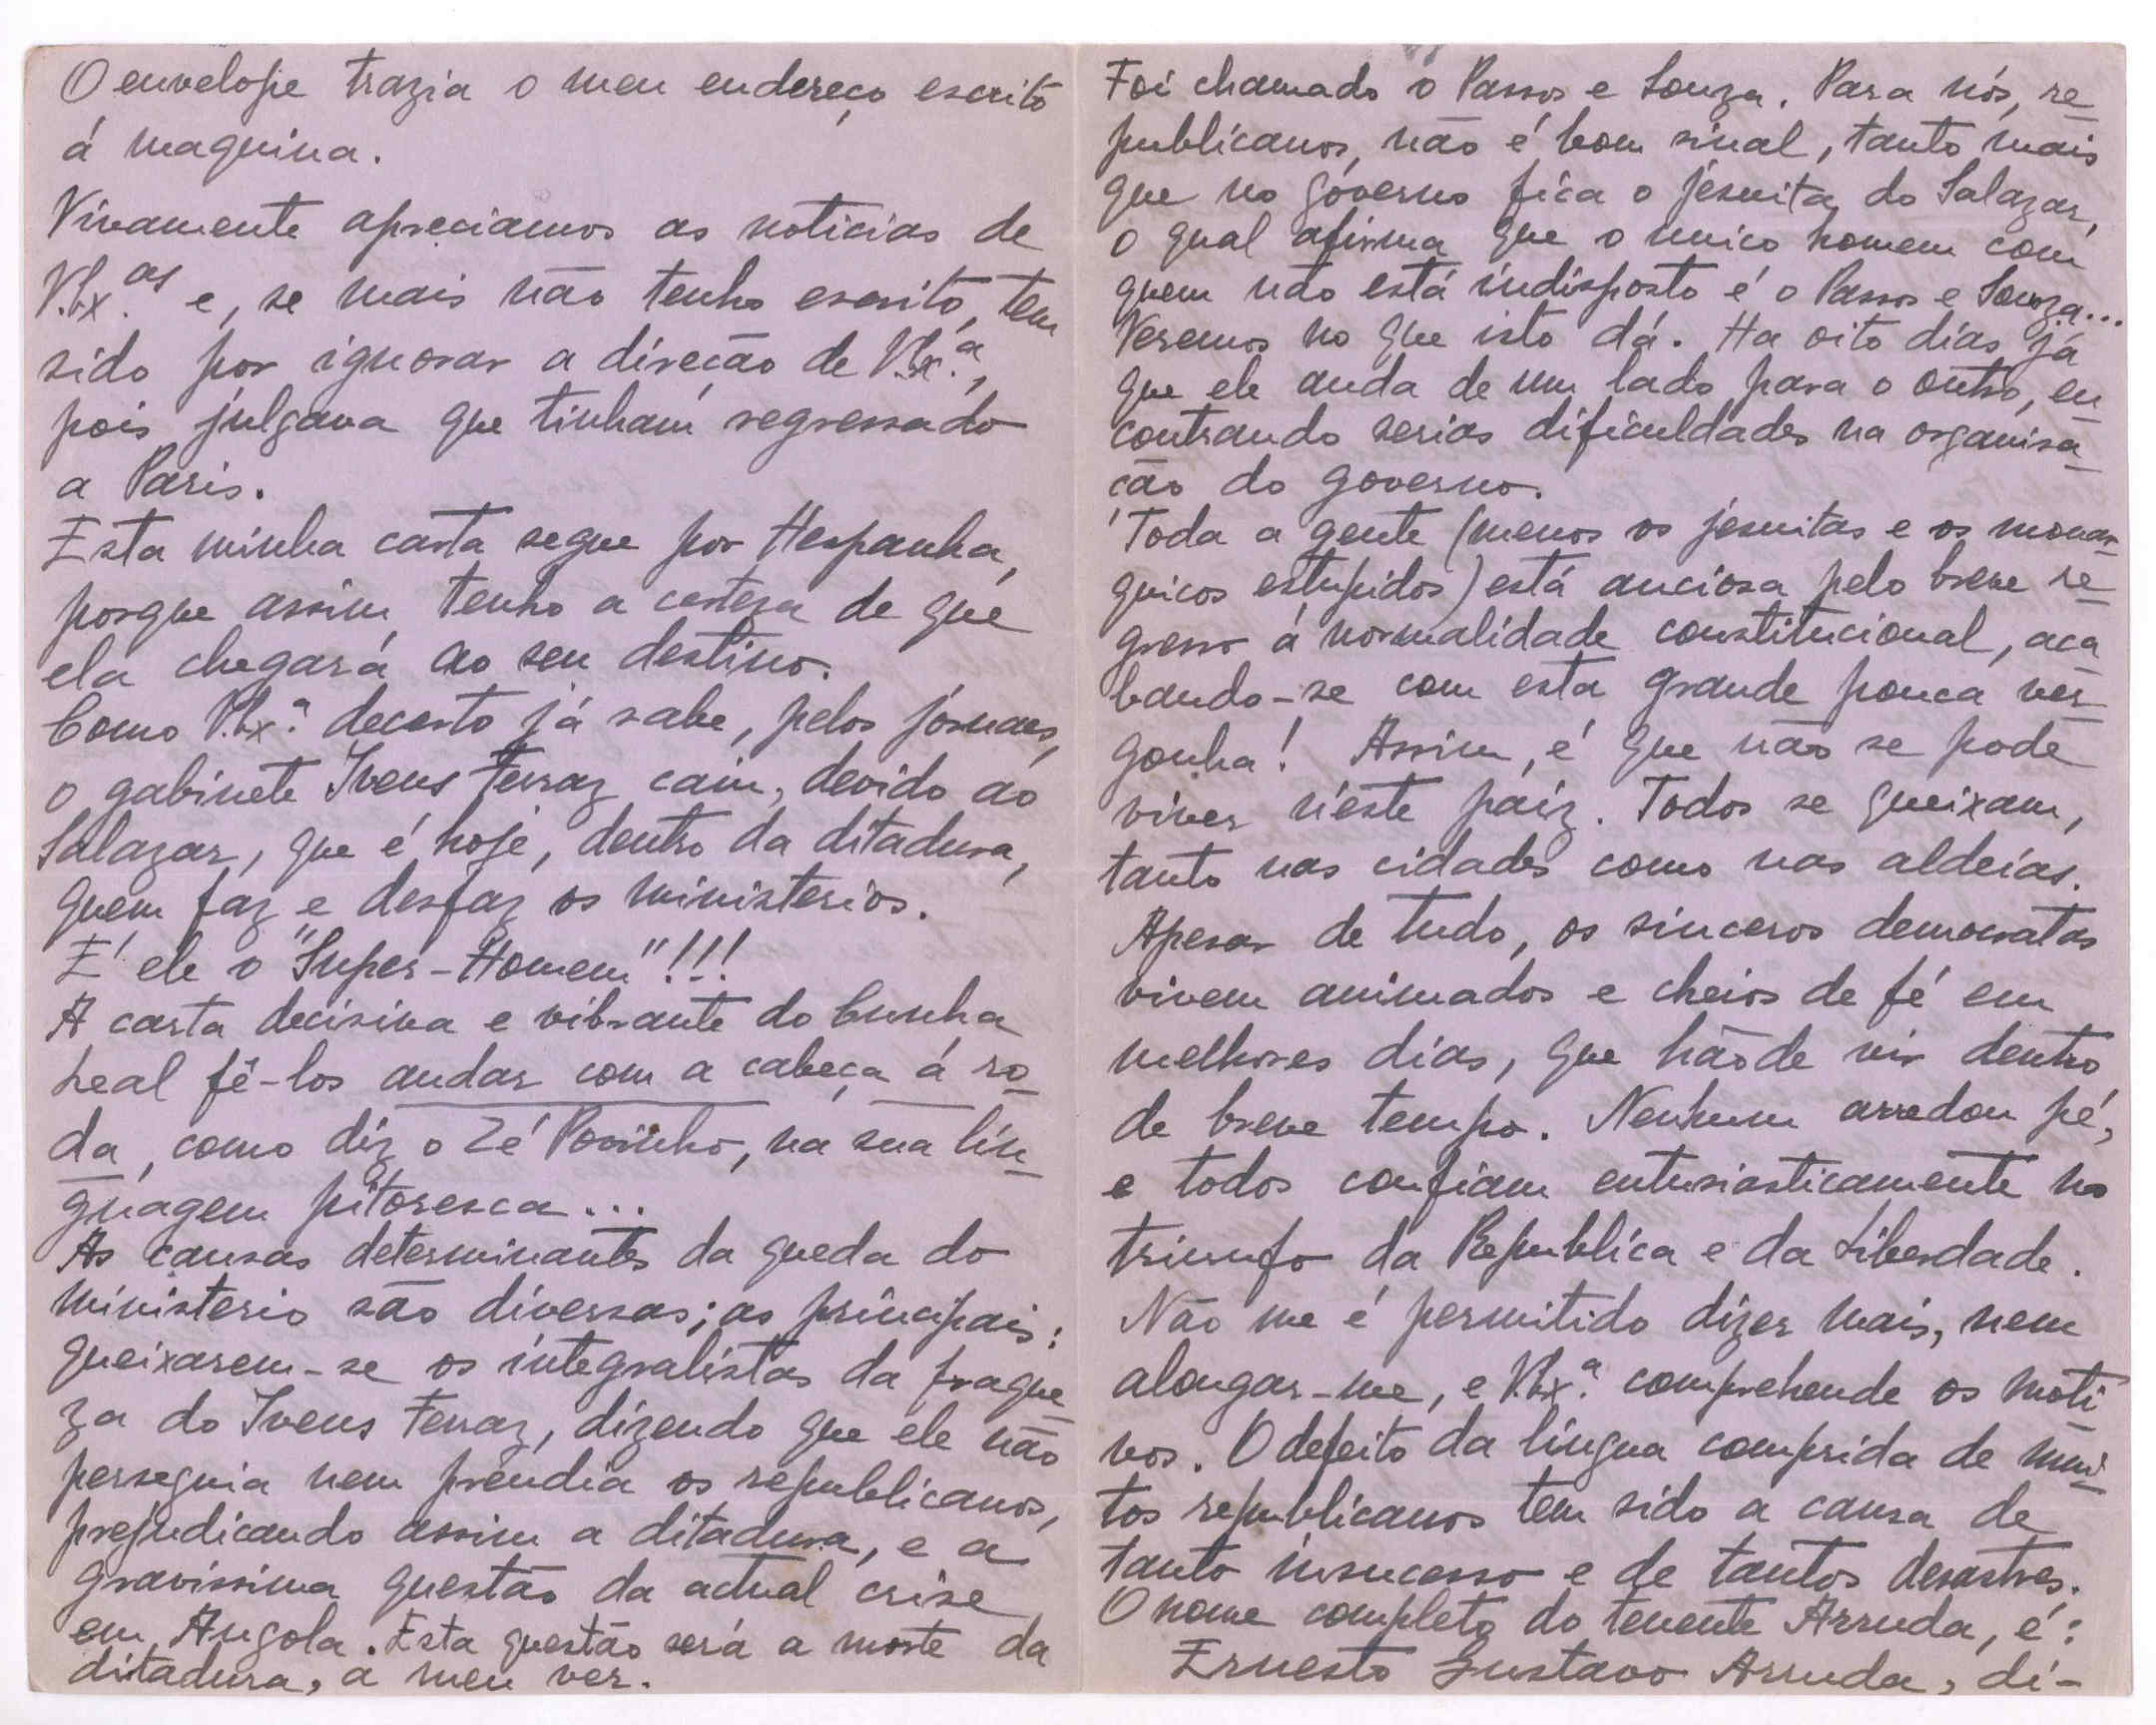 O envelope trazia o meu endereço escrito
á maquina.
Vivamente apreciamos as noticias de
V.Ex.as e, se mais não tenho escrito, tem
sido por ignorar a direcão de V.Ex.a,
pois julgava que tinham regressado
a Paris.
Esta minha carta segue por Hespanha,
porque assim tenho a certeza de que
ela chegará ao seu destino.
Como V.Ex.a decerto já sabe, pelos jornaes,
o gabinete Ivens Ferraz caiu, devido ao
Salazar, que é hoje, dentro da ditadura,
quem faz e desfaz os ministerios.
E' ele o "Super-Homem"!!!
A carta decisiva e vibrante do Cunha
Leal fê-los andar com a cabeça á ro-
da, como diz o Zé Povinho, na sua lin-
guagem pitoresca...
As causas determinantes da queda do
ministerio são diversas; as principais:
queixarem-se os integralistas da fraque-
za do Ivens Ferraz, dizendo que ele não
perseguia nem prendia os republicanos,
prejudicando assim a ditadura, e a
gravissima questão da actual crise
em Angola. Esta questão será a morte da
ditadura, a meu ver.
Foi chamado o Passos e Souza. Para nós, re-
publicanos, não é bom sinal, tanto mais
que no governo fica o jesuita do Salazar,
o qual afirma que o unico homem com
quem não está indisposto é o Passos e Souza...
Veremos no que isto dá. Ha oito dias já
que ele anda de um lado para o outro, en-
contrando serias dificuldades na organisa-
ção do governo.
Toda a gente (menos os jesuitas e os monar-
quicos estupidos) está anciosa pelo breve re-
gresso á normalidade constitucional, aca-
bando-se com esta grande pouca ver-
gonha! Assim, é que não se pode
viver n'este paiz. Todos se queixam,
tanto nas cidades como nas aldeias.
Apesar de tudo, os sinceros democratas
vivem animados e cheios de fé em
melhores dias, que hãode vir dentro
de breve tempo. Nenhum arredou pé,
e todos confiam entusiasticamente no
triunfo da Republica e da Liberdade.
Não me é permitido dizer mais, nem
alongar-me, e V.Ex.a comprehende os moti-
vos. O defeito da lingua comprida de mui-
tos republicanos tem sido a causa de
tanto insucesso e de tantos desastres.
O nome completo do tenente Arruda, é:
Ernesto Gustavo Arruda, di-